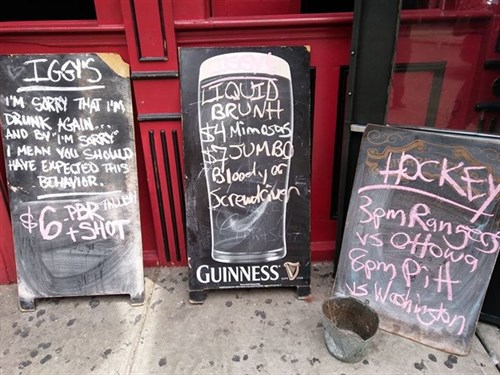 IGGY'S
I'M SORRY THAT I'M
DRUNK AGAIN...
AND BY "I'M SORRY"
I MEAN YOU SHOULD
HAVE EXPECTED THIS
BEHAVIOR.
$6 PBR TALLBOY
+ SHOT
LIQUID
BRUNH
$4 Mimosas
$7 JUMBO
Bloody or
Screwdriver
GUINNESS
HOCKEY
3pm Rangers
vs Ottowa
8pm Pitt
vs. Washington